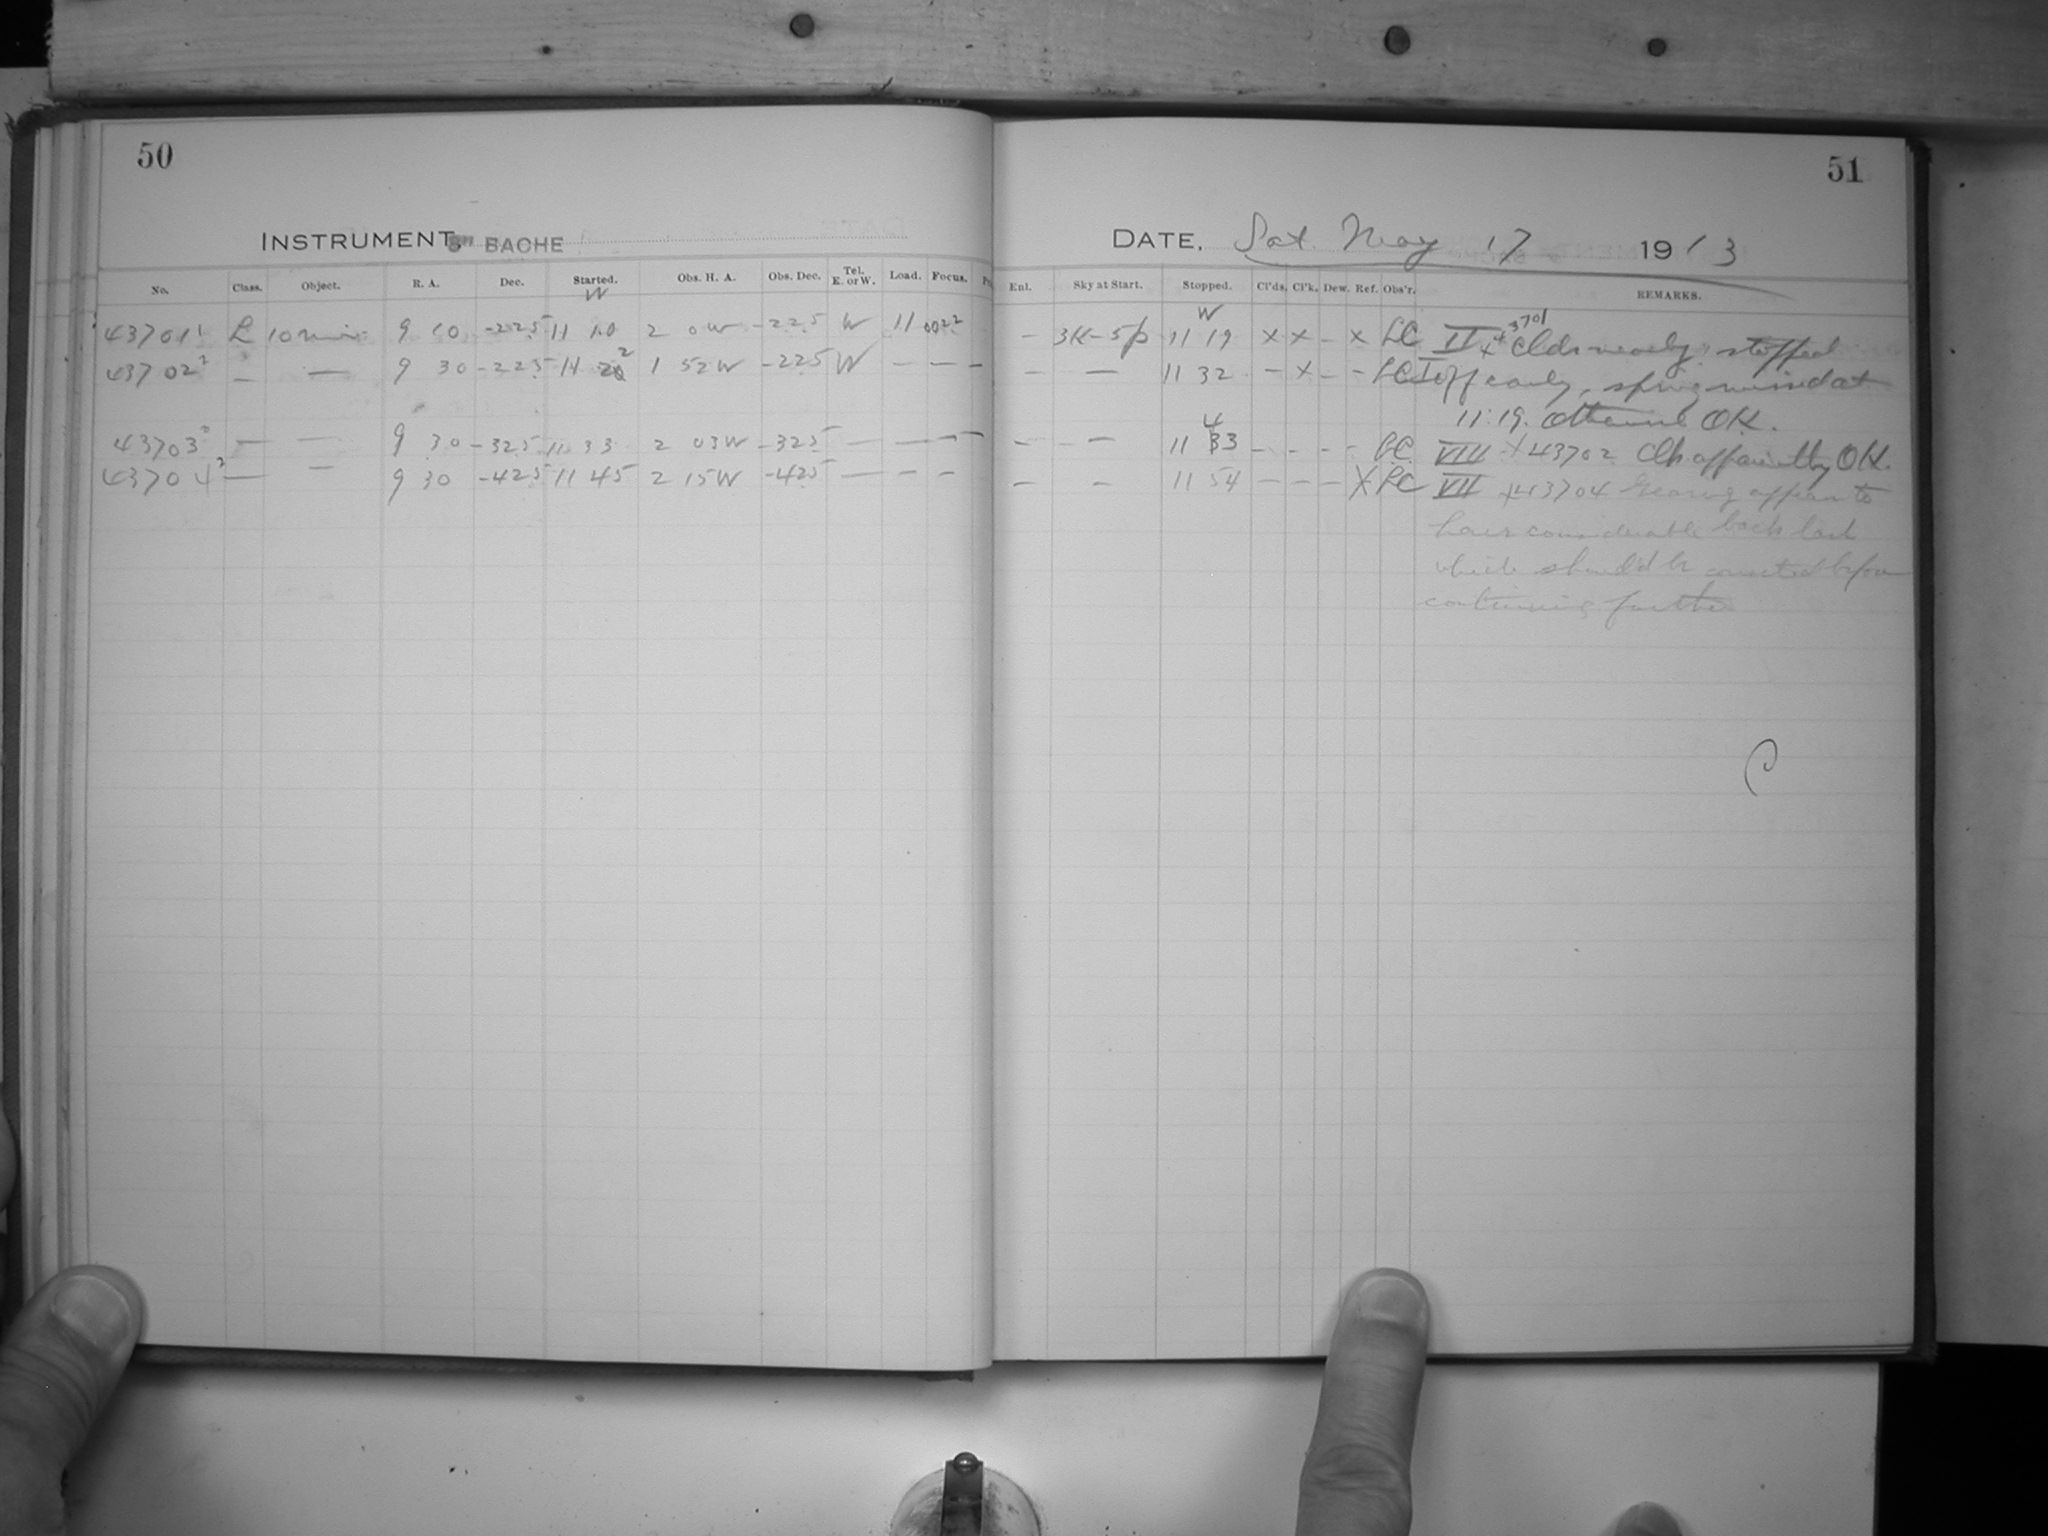 50
51
INSTRUMENT, 8" BACHE
DATE, Sat. May 17 1913
No. Class. Object. R. A. Dec. Started. Obs. H. A. Obs. Dec. Tel. E. or W. Load. Focus.
Enl. Sky at Start. Stopped. Cl'ds. Cl'k. Dew. Ref. Obs'r. REMARKS.
W
W
43701 L 10 min 9 10 -22.5 11 10 2 0W -22.5 W 11 0022
- 3K-5p 11 19 x x - x LC II x 43701 Clds nearly stopped
43702 - - 9 30 -22.5 11 20 2 1 52W -22.5 W - - -
- - 11 32 - x - - LC I off early, spring missed at
11:19. Otherwise OK.
43703 - - 9 30 -32.5 11 33 2 03W -32.5 - - - -
- - 11 4 33 - - - - LC VIII x 43702 Clk apparently OK.
43704 - - 9 30 -42.5 11 45 2 15W -42.5 - - - -
- - 11 54 - - - X LC VII x 43704 Gearing appears to
have considerable back lash
which should be corrected before
continuing further